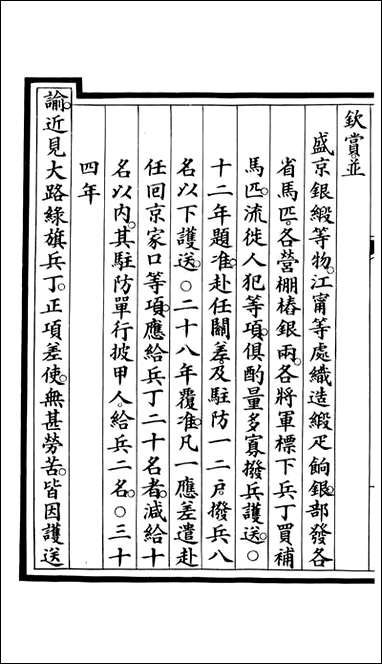 欽賞並
盛京銀緞等物。江甯等處織造緞疋餉銀。部發各
省馬匹。各營棚樁銀兩。各將軍標下兵丁買補
馬匹。流徙人犯等項。俱酌量多寡撥兵護送。○
十二年題准。赴任關差。及駐防一二戶。撥兵八
名以下護送。○二十八年覆准。凡一應差遣赴
任回京家口等項。應給兵丁二十名者。減給十
名以內。其駐防單行披甲人。給兵二名。○三十
四年
諭。近見大路綠旗兵丁。正項差使。無甚勞苦。皆因護送